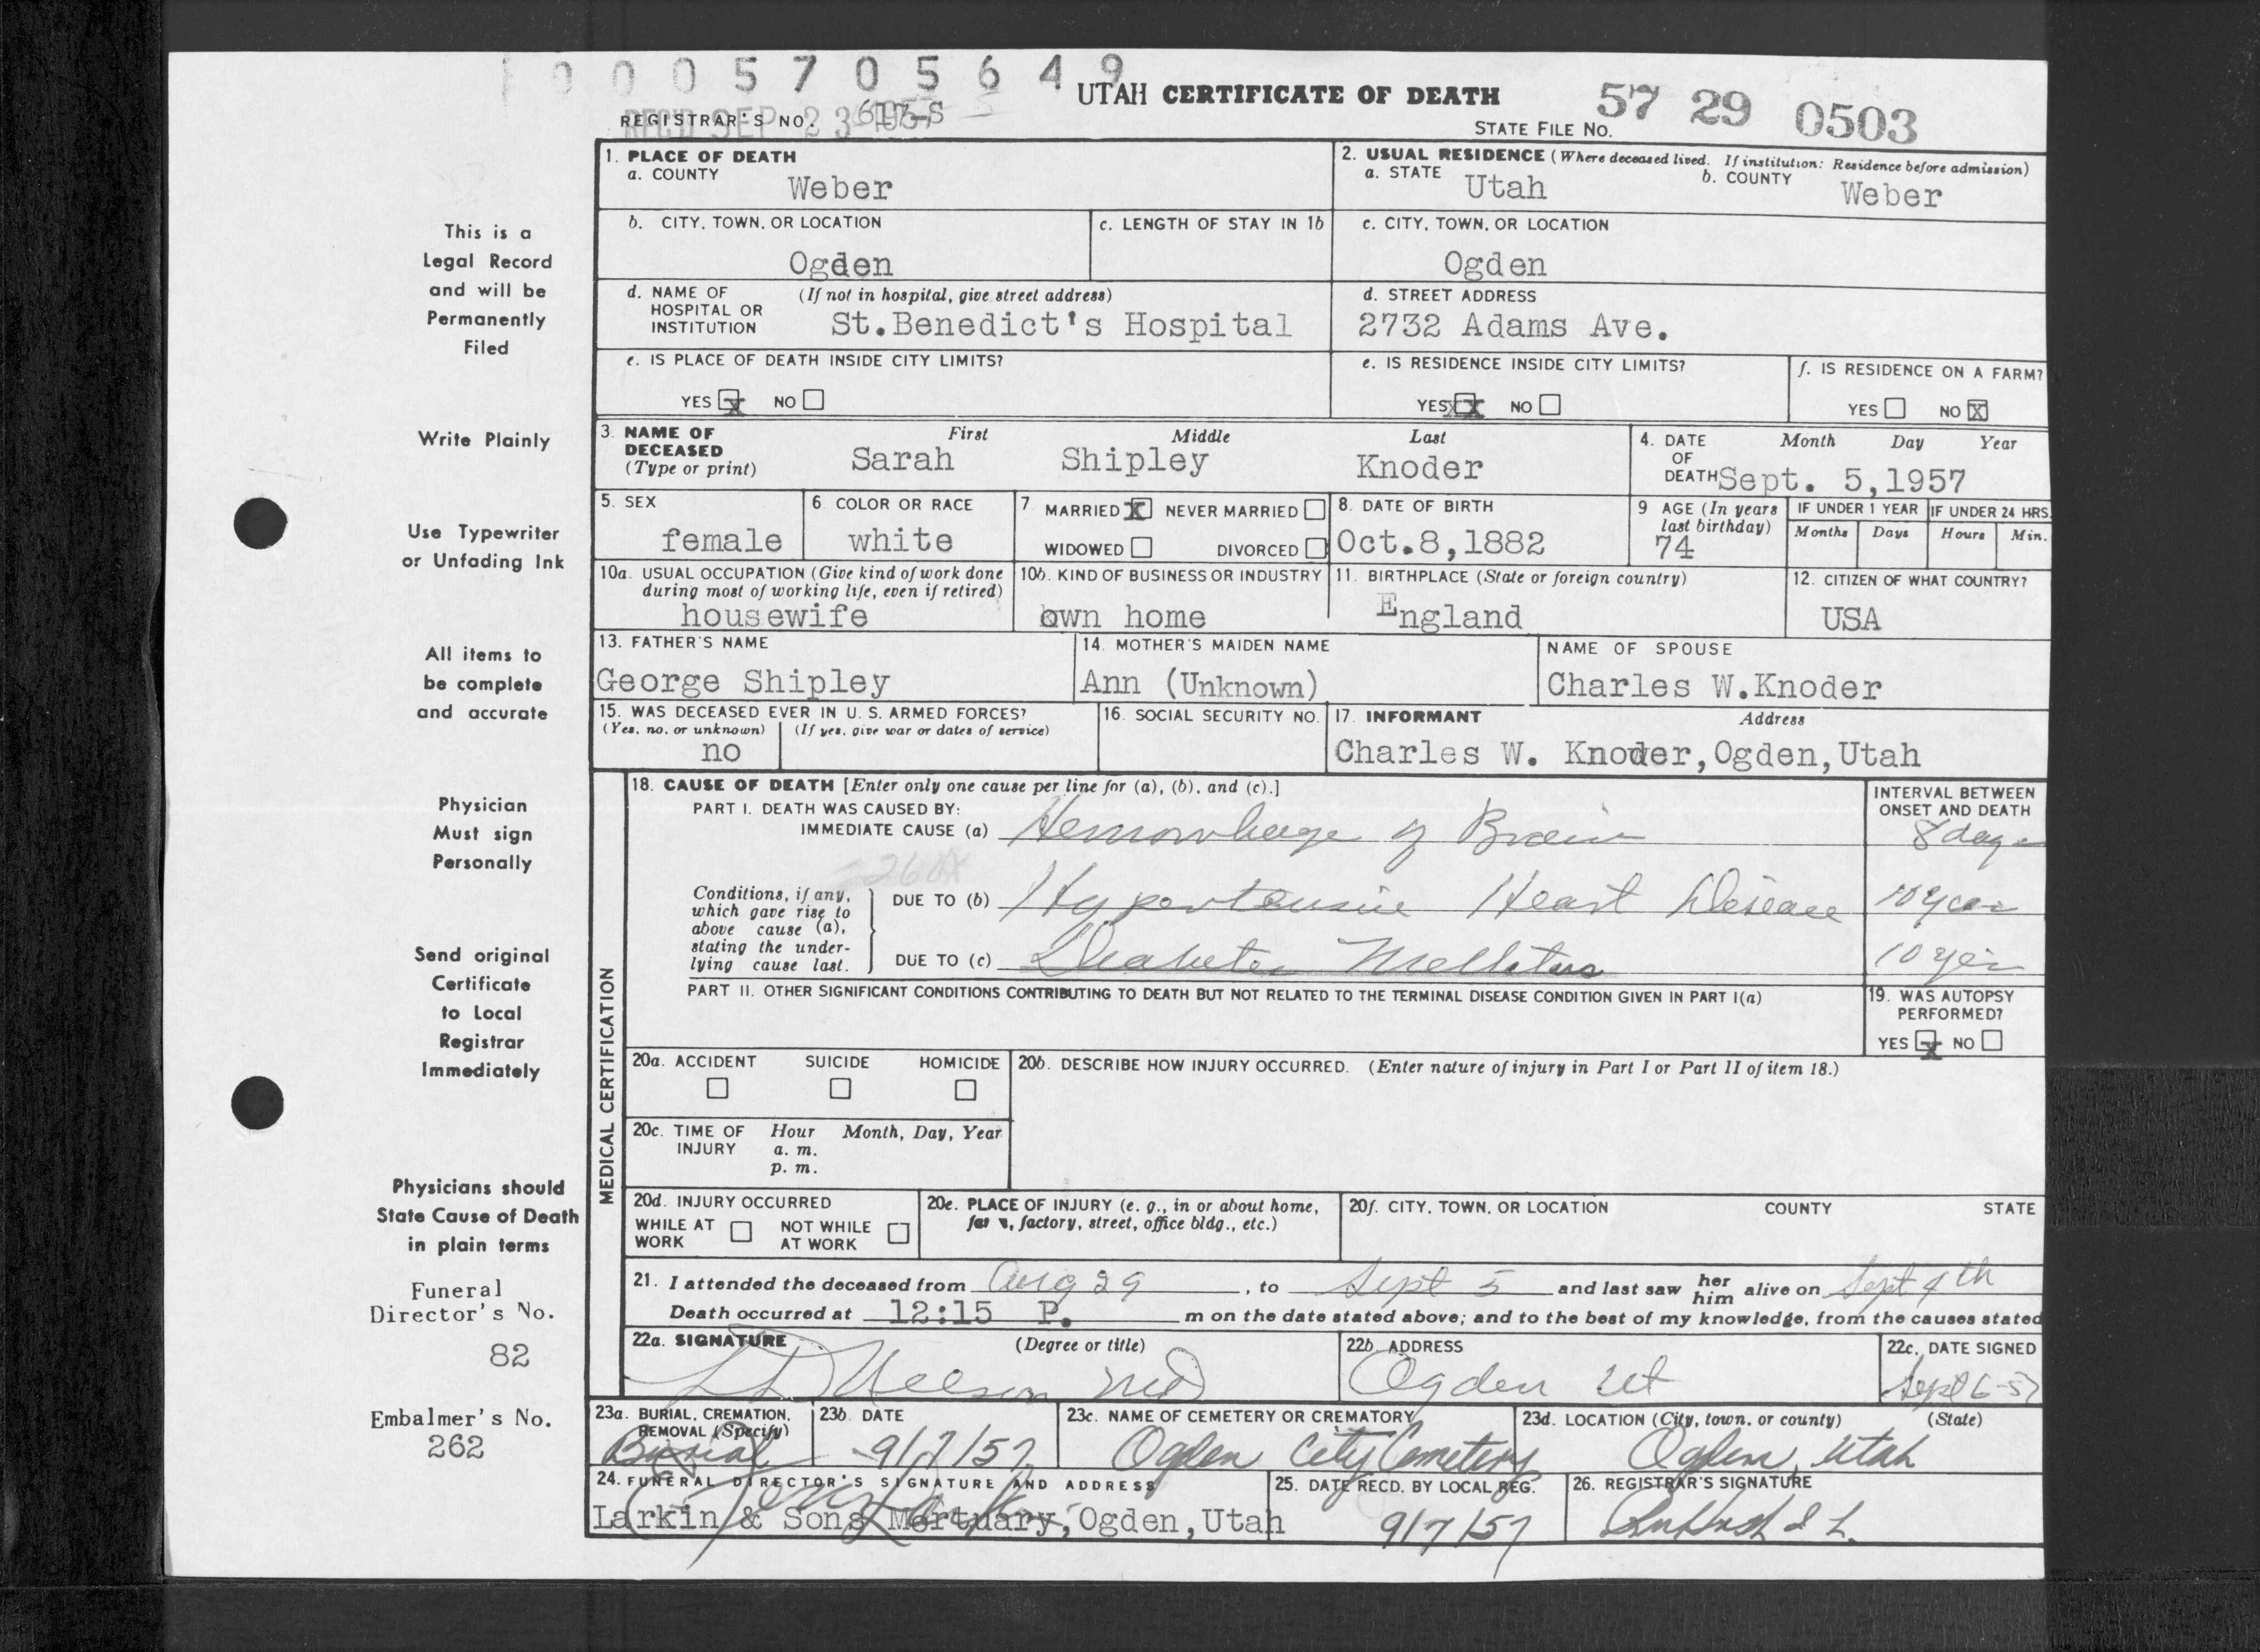 0 0 0 5 7 0 5 6 4 9
UTAH CERTIFICATE OF DEATH
REGISTRAR'S NO. 617-S
REC'D SEP 23 1957
STATE FILE NO. 57 29 0503
This is a
Legal Record
and will be
Permanently
Filed
Write Plainly
Use Typewriter
or Unfading Ink
All items to
be complete
and accurate
Physician
Must sign
Personally
Send original
Certificate
to Local
Registrar
Immediately
Physicians should
State Cause of Death
in plain terms
Funeral
Director's No.
82
Embalmer's No.
262
1. PLACE OF DEATH
a. COUNTY
Weber
2. USUAL RESIDENCE (Where deceased lived. If institution: Residence before admission)
a. STATE Utah b. COUNTY Weber
b. CITY, TOWN, OR LOCATION
Ogden
c. LENGTH OF STAY IN 1b
c. CITY, TOWN, OR LOCATION
Ogden
d. NAME OF HOSPITAL OR INSTITUTION (If not in hospital, give street address)
St.Benedict's Hospital
d. STREET ADDRESS
2732 Adams Ave.
e. IS PLACE OF DEATH INSIDE CITY LIMITS?
YES X NO
e. IS RESIDENCE INSIDE CITY LIMITS?
YES X NO
f. IS RESIDENCE ON A FARM?
YES NO X
3. NAME OF DECEASED (Type or print) First Middle Last
Sarah Shipley Knoder
4. DATE OF DEATH Month Day Year
Sept. 5,1957
5. SEX
female
6 COLOR OR RACE
white
7 MARRIED X NEVER MARRIED
WIDOWED DIVORCED
8. DATE OF BIRTH
Oct.8,1882
9 AGE (In years last birthday)
74
IF UNDER 1 YEAR
Months Days
IF UNDER 24 HRS.
Hours Min.
10a. USUAL OCCUPATION (Give kind of work done during most of working life, even if retired)
housewife
10b. KIND OF BUSINESS OR INDUSTRY
own home
11. BIRTHPLACE (State or foreign country)
England
12. CITIZEN OF WHAT COUNTRY?
USA
13. FATHER'S NAME
George Shipley
14. MOTHER'S MAIDEN NAME
Ann (Unknown)
NAME OF SPOUSE
Charles W.Knoder
15. WAS DECEASED EVER IN U. S. ARMED FORCES?
(Yes, no, or unknown) (If yes, give war or dates of service)
no
16. SOCIAL SECURITY NO.
17. INFORMANT Address
Charles W. Knoder,Ogden,Utah
MEDICAL CERTIFICATION
18. CAUSE OF DEATH [Enter only one cause per line for (a), (b), and (c).]
PART I. DEATH WAS CAUSED BY:
IMMEDIATE CAUSE (a) Hemorrhage of Brain
INTERVAL BETWEEN ONSET AND DEATH
8 days
260X
Conditions, if any, which gave rise to above cause (a), stating the underlying cause last.
DUE TO (b) Hypertensive Heart Disease 10 years
DUE TO (c) Diabetes Mellitus 10 yrs
PART II. OTHER SIGNIFICANT CONDITIONS CONTRIBUTING TO DEATH BUT NOT RELATED TO THE TERMINAL DISEASE CONDITION GIVEN IN PART I(a)
19. WAS AUTOPSY PERFORMED?
YES X NO
20a. ACCIDENT SUICIDE HOMICIDE
20b. DESCRIBE HOW INJURY OCCURRED. (Enter nature of injury in Part I or Part II of item 18.)
20c. TIME OF INJURY Hour Month, Day, Year
a. m.
p. m.
20d. INJURY OCCURRED
WHILE AT WORK NOT WHILE AT WORK
20e. PLACE OF INJURY (e. g., in or about home, farm, factory, street, office bldg., etc.)
20f. CITY, TOWN, OR LOCATION COUNTY STATE
21. I attended the deceased from Aug 29, to Sept 5 and last saw her him alive on Sept 4th
Death occurred at 12:15 P. m on the date stated above; and to the best of my knowledge, from the causes stated
22a. SIGNATURE (Degree or title)
Nelson MD
22b. ADDRESS
Ogden Ut
22c. DATE SIGNED
Sept 6-57
23a. BURIAL, CREMATION, REMOVAL (Specify)
Burial
23b. DATE
9/7/57
23c. NAME OF CEMETERY OR CREMATORY
Ogden City Cemetery
23d. LOCATION (City, town, or county) (State)
Ogden, Utah
24. FUNERAL DIRECTOR'S SIGNATURE AND ADDRESS
Larkin & Sons Mortuary, Ogden,Utah
25. DATE RECD. BY LOCAL REG.
9/7/57
26. REGISTRAR'S SIGNATURE